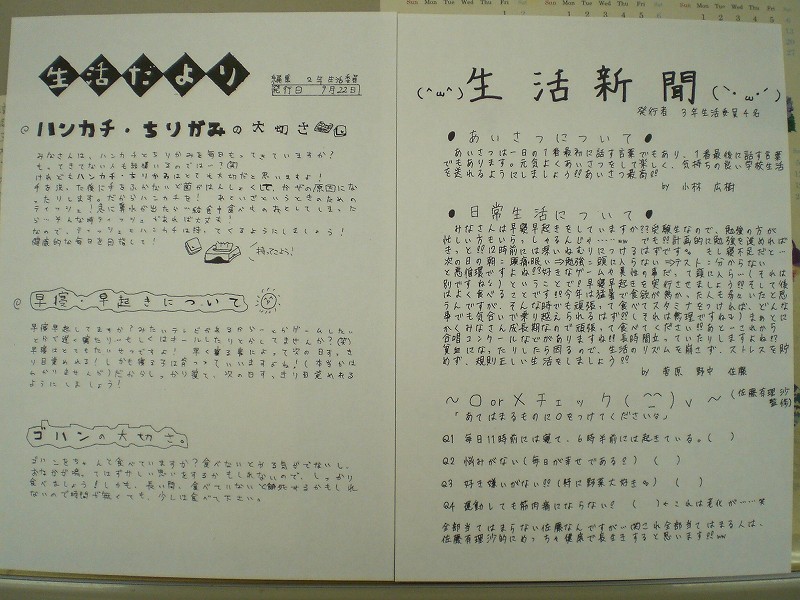 生活だより
編集 2年生活委員
発行日 9月22日
@ ハンカチ・ちりがみの大切さ
みなさんは、ハンカチとちりがみを毎日もってきていますか?
もってきてない人も結構いるのでは…?(笑)
けれどもハンカチ・ちりがみはとても大切だと思いますよ!
手を洗った後に手をふかないと菌がはんしょくして、かぜの原因にな
ったりします。だからハンカチを!
なので、ティッシュとハンカチは持ってくるようにしましょう!
健康的な毎日を目指して!
持ってたよ!
@ 早寝・早起きについて
早寝早起してますか?みたいテレビがあるが〜とかゲームしたい
ようにしましょう!
ゴハンの大切さ。
ゴハンをちゃんと食べていますか?食べないとやる気がでないし、
おなかが鳴ってはずかしい思いをするかもしれないので、しっかり
食べましょう!しかも、長い間、食べていないと餓死するかもしれ
ないので時間が無くても、少しは食べて下さい。
(^ω^) 生活新聞 (`・ω・´)
発行者 3年生活委員4名
● あいさつについて ●
あいさつは一日の1番最初に話す言葉でもあり、1番最後に話す言葉
でもあります。元気よくあいさつをして楽しく、気持ちの良い学校生活
を送れるようにしましょう!!あいさつ最高!!
by 小林 広樹
● 日常生活について ●
みなさんは早寝早起きをしていますか??受験生なので、勉強の方が
忙しい方もいらっしゃるんじゃ……ww でも!!計画的に勉強を進めれば
きっと!!12時前には深いねむりにつけるはずです。もし寝不足だと…
次の日の朝:頭痛・眠い⇒勉強:頭に入らない⇒テスト:分からない
と悪循環ですよね!!?好きなゲームや異性の事だって頭に入ら…(それは
別ですねっ)ということで!早寝早起きを実行させましょう!!そして後
はよく食べることです!!今年は猛暑で食欲が無かった人も多いたと思
うんですが、そんな時でも頑張って食べてスタミナをつければ、どんな
事でも気合いで乗り越えられるはず!!それは無理ですね;)まぁとに
かくみなさん成長期なので頑張って食べてください!!あと…これから
合唱コンクールなどがありますね!!長時間立っていたりしますよね!?
貧血になったりしたら困るので、生活のリズムを崩さず、ストレスを貯
めず、規則正しい生活をしましょう!!
by 菅原 野中 佐藤
〜○or×チェック(⌒⌒)v〜 (佐藤有理沙
監修)
「あてはまるものに○をつけてくださいな」
Q1 毎日11時前には寝て、6時半前には起きている。( )
Q2 悩みがない(毎日が幸せである!!) ( )
Q3 好き嫌いがない!!(特に野菜大好き。) ( )
Q4 運動しても筋肉痛にならない!! ( )←これは老化が……笑
全部当てはまらない佐藤なんですが…(笑)これ全部当てはまる人は、
佐藤有理沙的にめっちゃ健康で長生きすると思います!!ww